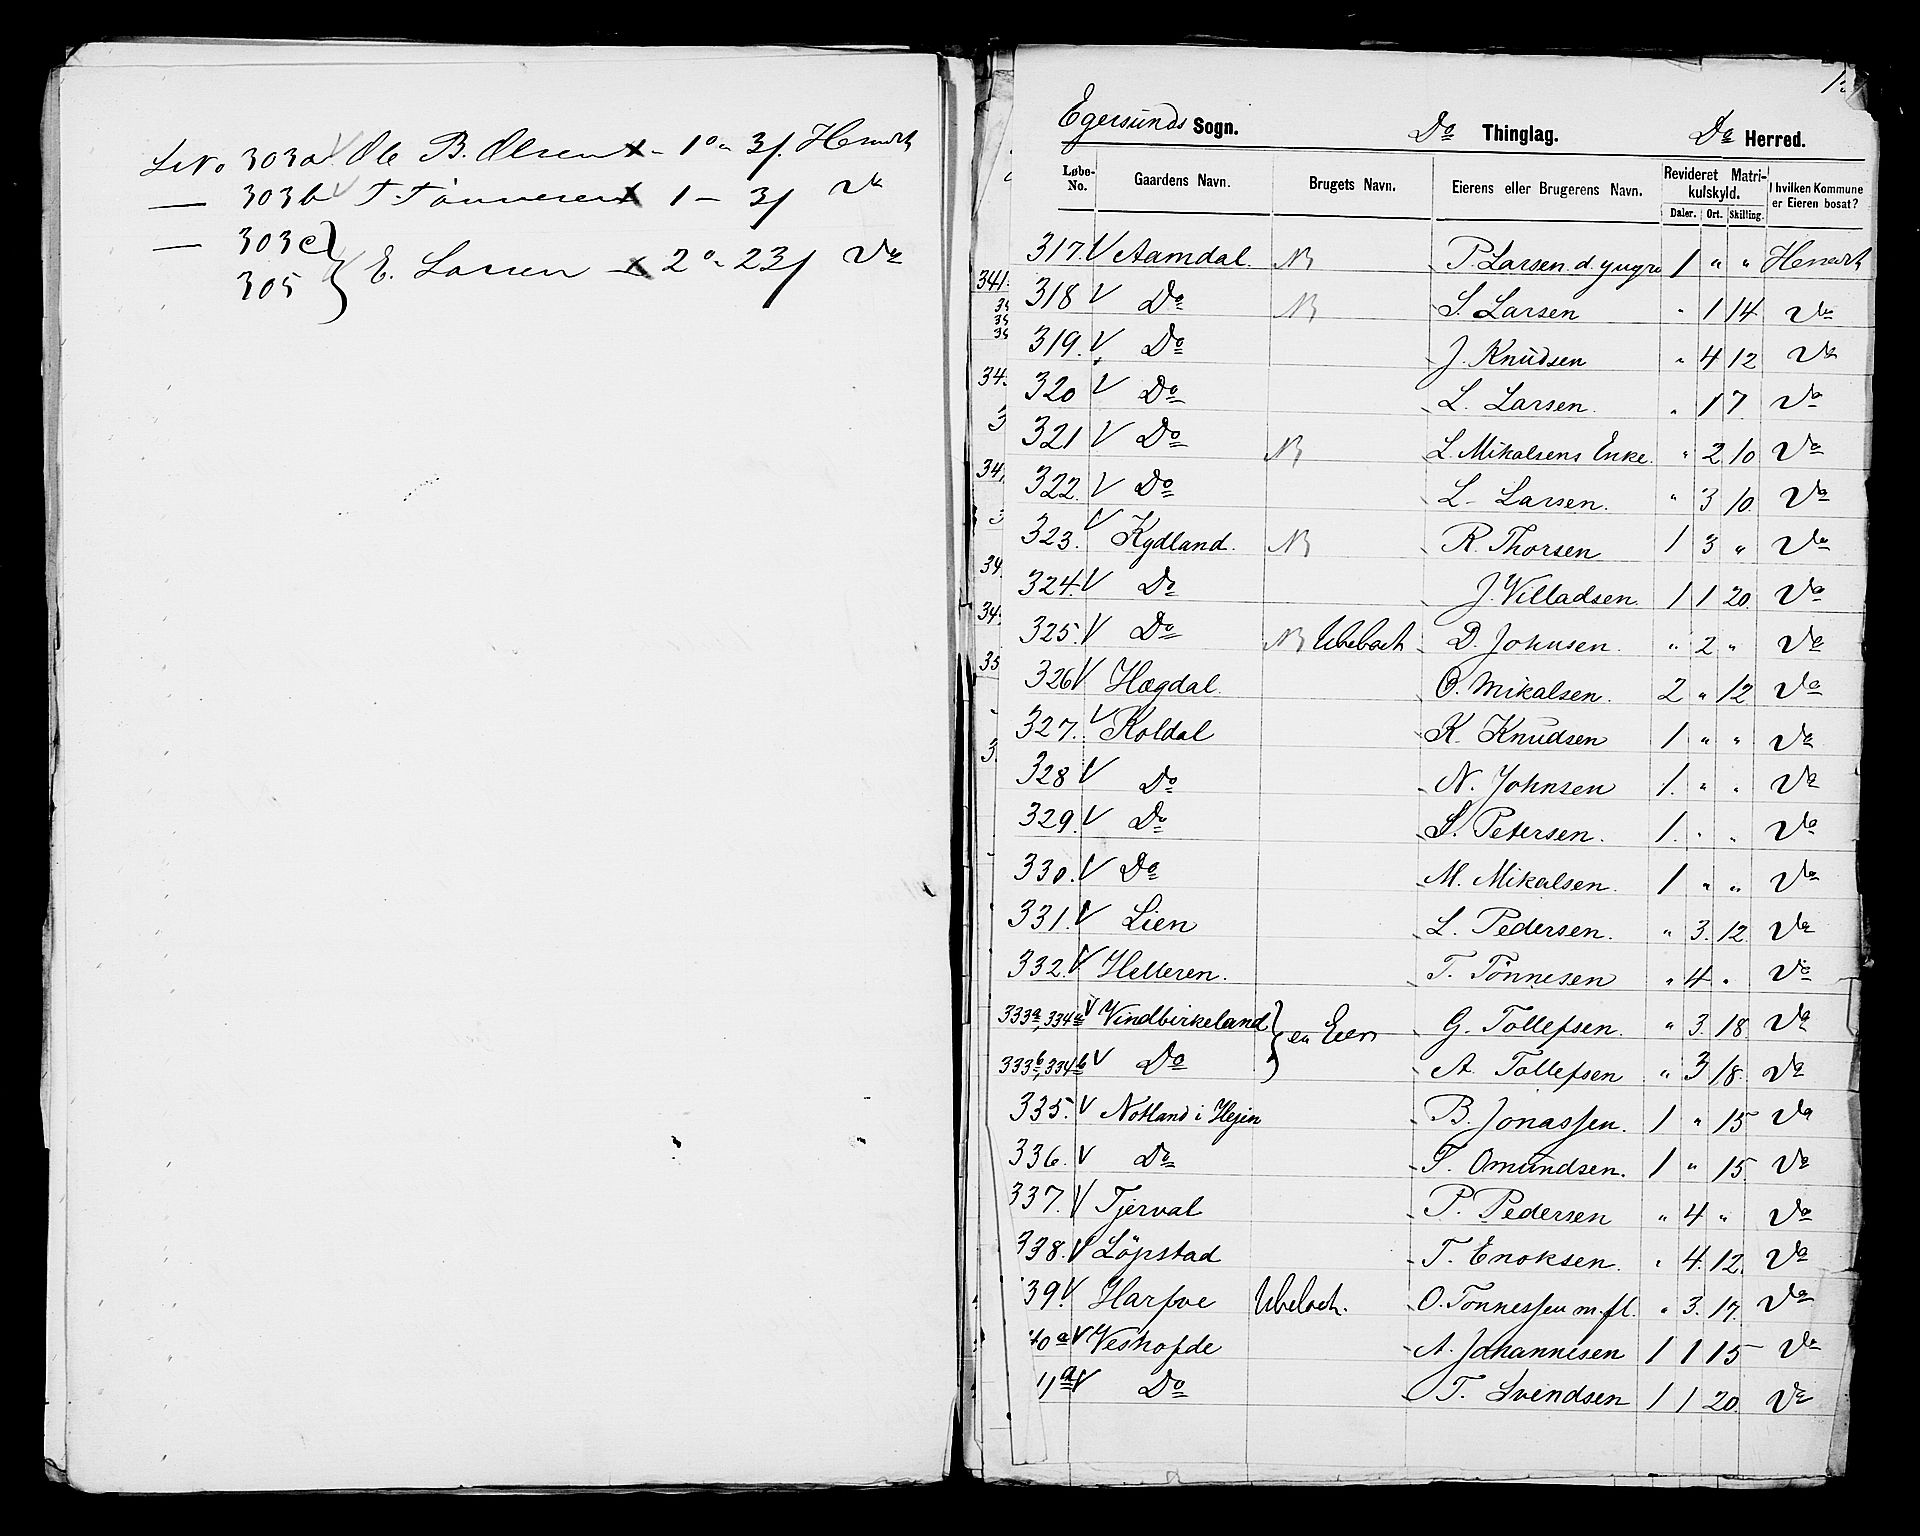 LNo 303a. Ole B. Olsen x - 1 o " 3 s. Heredt
— 303b T. Tönnesen x 1 - 3 s Do
— 303c
305 } E. Larsen - x 2 o " 23 s Do
Egersunds Sogn. Do Thinglag. Do Herred.
Løbe-No. Gaardens Navn. Brugets Navn. Eierens eller Brugerens Navn. Revideret Matrikulskyld. Daler. Ort. Skilling. I hvilken Kommune er Eieren bosat?
317. V Aamdal. N P. Larsen d. yngre 1 " " Heredt
318 V Do N S. Larsen " 1 14 Do
319. V Do J. Knudsen " 4 12 Do
320 V Do L. Larsen. " 1 7 Do
321 V Do N L. Mikalsens Enke. " 2 10 Do
322. V Do L. Larsen. " 3 10. Do
323. V Kydland. N R. Thorsen 1 3 " Do
324. V Do J. Villadsen. 1 1 20. Do
325. V Do N Ubeboet D. Johnsen. " 2 " Do
326 V Hægdal. O. Mikalsen. 2 " 12 Do
327. V Koldal K. Knudsen 1 " " Do
328 V Do N. Johnsen 1. " " Do
329. V Do S. Petersen. 1. " " Do
330. V Do M. Mikalsen. 1 " " Do
331. V Lien L. Pedersen. " 3. 12. Do
332. V Helleren. T. Tönnesen " 4 " Do
333a, 334a V Vindbirkeland } en Eier G. Tollefsen. " 3. 18. Do
333b, 334b V Do A. Tollefsen " 3 18. Do
335. V Notland i Hejen B. Jonassen. 1 " 15 Do
336. V Do T. Omundsen. 1 " 15. Do
337. V Tjerval P. Pedersen " 4 " Do
338. V Löpstad T. Enoksen. " 4. 12. Do
39. V Harfve Ubeboet. O. Tonnessen m. fl. " 3. 17. Do
40a V Veshofde A. Johannesen 1 1 15 Do
a V Do T. Svendsen 1 1 20. Do